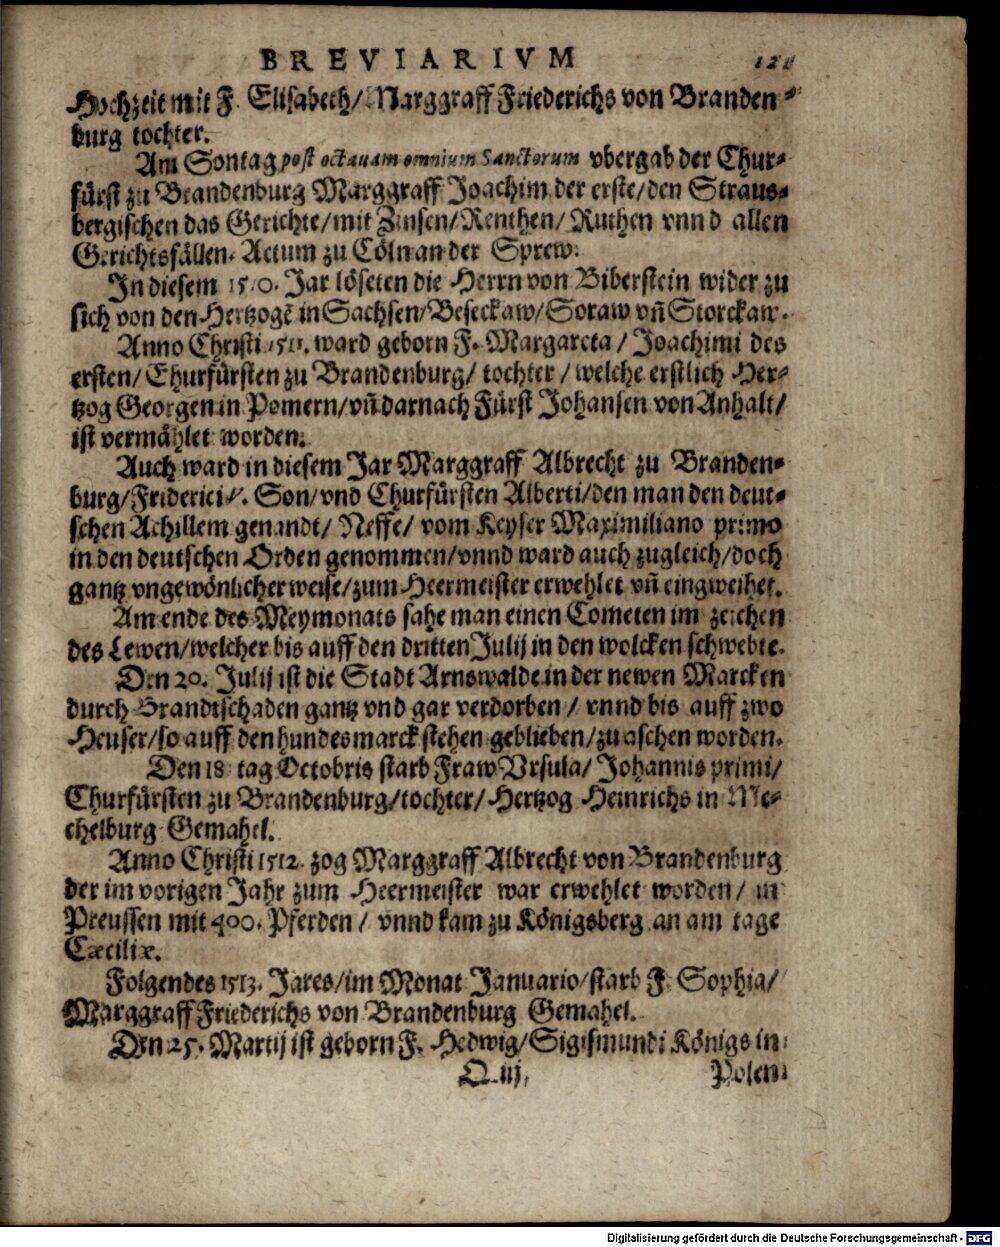 BREVIARIVM
Hochzeit mit F. Elisabeth/ Marggraff Friederichs von Branden-
burg tochter.
Am Sontag post octauam omnium Sanctorum vbergab der Chur-
fürst zu Brandenburg Marggraff Joachim der erste/den Straus-
bergischen das Gerichte/mit Zinsen/Renthen/Ruthen vnnd allen
Gerichtsfällen. Actum zu Cöln an der Sprew.
In diesem 1510. Jar löseten die Herrn von Biberstein wider zu
sich von den Hertzogē in Sachsen/Beseckaw/Soraw vn̄ Storckaw.
Anno Christi 1511. ward geborn F. Margareta / Joachimi des
ersten/Churfürsten zu Brandenburg/ tochter / welche erstlich Her-
tzog Georgen in Pomern/vn̄ darnach Fürst Johansen von Anhalt/
ist vermählet worden.
Auch ward in diesem Jar Marggraff Albrecht zu Branden-
burg/Friderici Son/vnd Churfürsten Alberti/den man den deut-
schen Achillem genandt/ Neffe/ vom Keyser Maximiliano primo
in den deutschen Orden genommen/vnnd ward auch zugleich/doch
gantz vngewönlicher weise/zum Heermeister erwehlet vn̄ eingweihet.
Am ende des Meymonats sahe man einen Cometen im zeichen
des Lewen/welcher bis auff den dritten Julij in den wolcken schwebte.
Den 20. Julij ist die Stadt Arnswalde in der newen Marcken
durch Brandtschaden gantz vnd gar verdorben / vnnd bis auff zwo
Heuser/so auff den hundesmarck stehen geblieben/zu aschen worden.
Den 18 tag Octobris starb Fraw Vrsula/ Johannis primi/
Churfürsten zu Brandenburg/tochter/Hertzog Heinrichs in Me-
chelburg Gemahel.
Anno Christi 1512. zog Marggraff Albrecht von Brandenburg
der im vorigen Jahr zum Heermeister war erwehlet worden/ in
Preussen mit 400. Pferden / vnnd kam zu Königsberg an am tage
Cæciliæ.
Folgendes 1513. Jares/im Monat Januario/starb F. Sophia/
Marggraff Friederichs von Brandenburg Gemahel.
Den 25. Martij ist geborn F. Hedwig/Sigismundi Königs in
Q iij. Polen
Digitalisierung gefördert durch die Deutsche Forschungsgemeinschaft - DFG